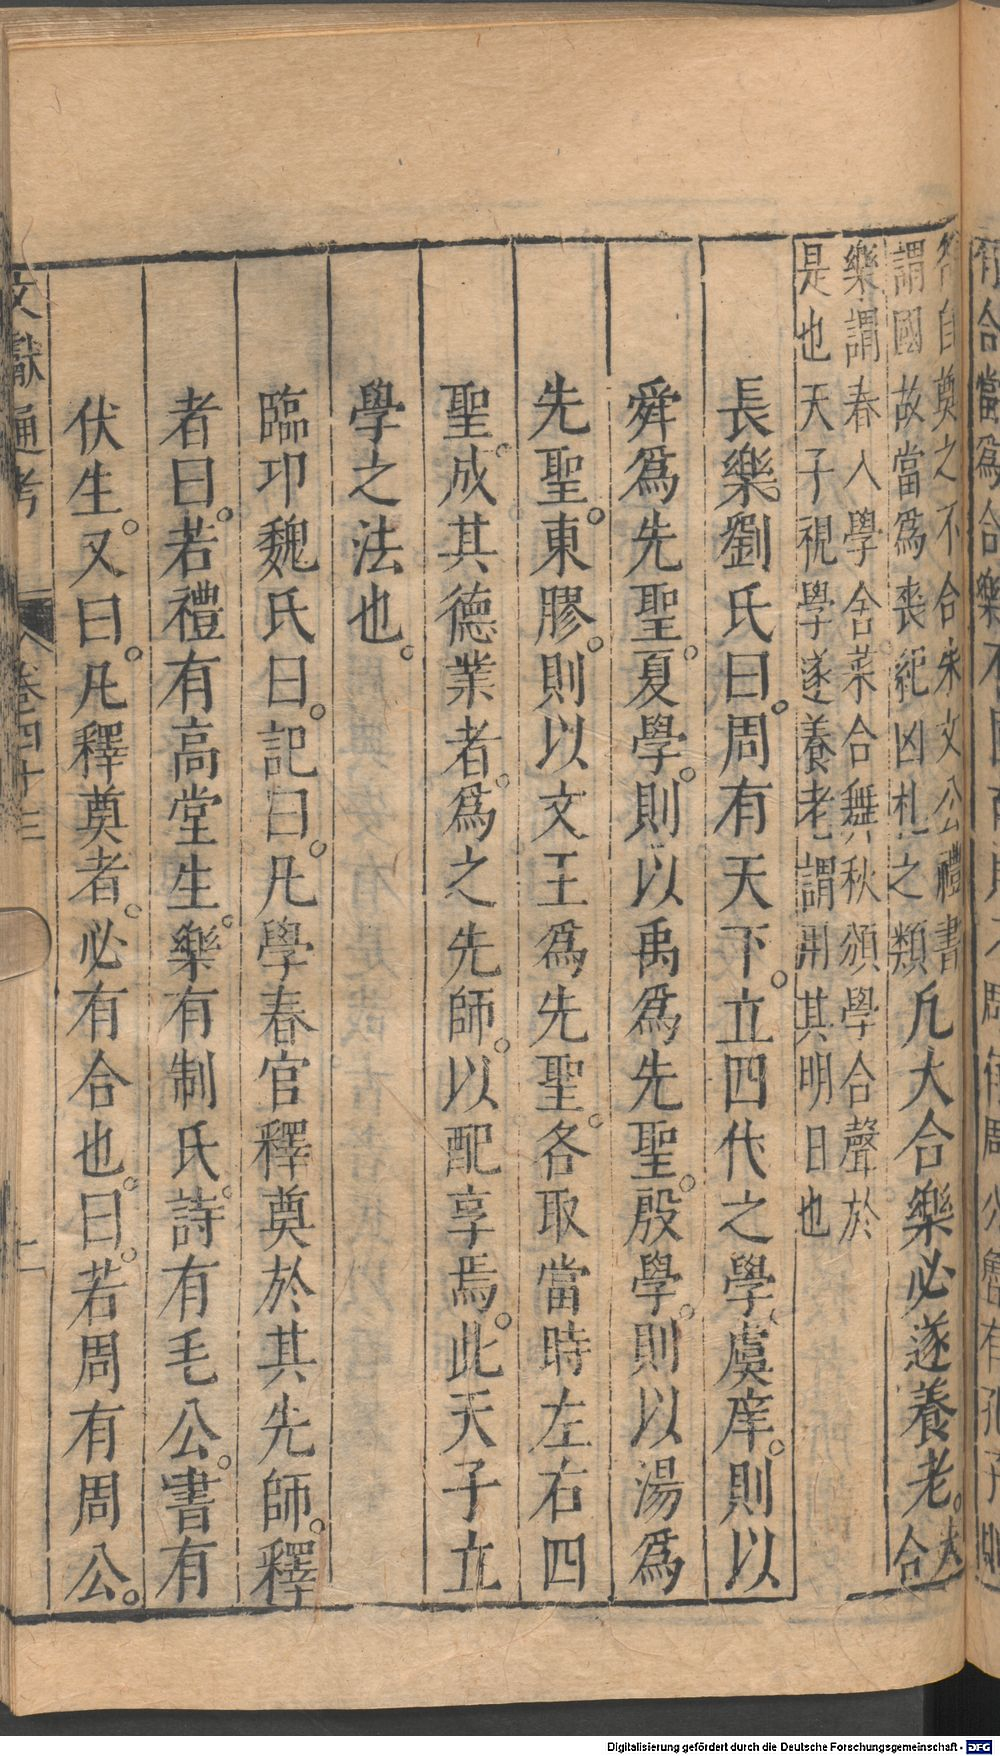 各自奠之不合朱文公禮書
謂國故當爲喪紀凶札之類
凡大合樂必遂養老。
大
合
樂謂春入學舍菜合舞秋頒學合聲於
是也天子視學遂養老謂用其明日也
長樂劉氏曰。周有天下。立四代之學、虞庠。則以
舜爲先聖。夏學。則以禹爲先聖。殷學。則以湯爲
先聖。東膠。則以文王爲先聖。各取當時左右四
聖。成其德業者。爲之先師。以配享焉。此天子立
學之法也。
臨卭魏氏曰。記曰。凡學春官釋奠於其先師。釋
者曰。若禮有高堂生。樂有制氏。詩有毛公。書有
伏生。又曰。凡釋奠者。必有合也。曰。若周有周公。
文獻通考
卷四十三
Digitalisierung gefördert durch die Deutsche Forschungsgemeinschaft - DFG